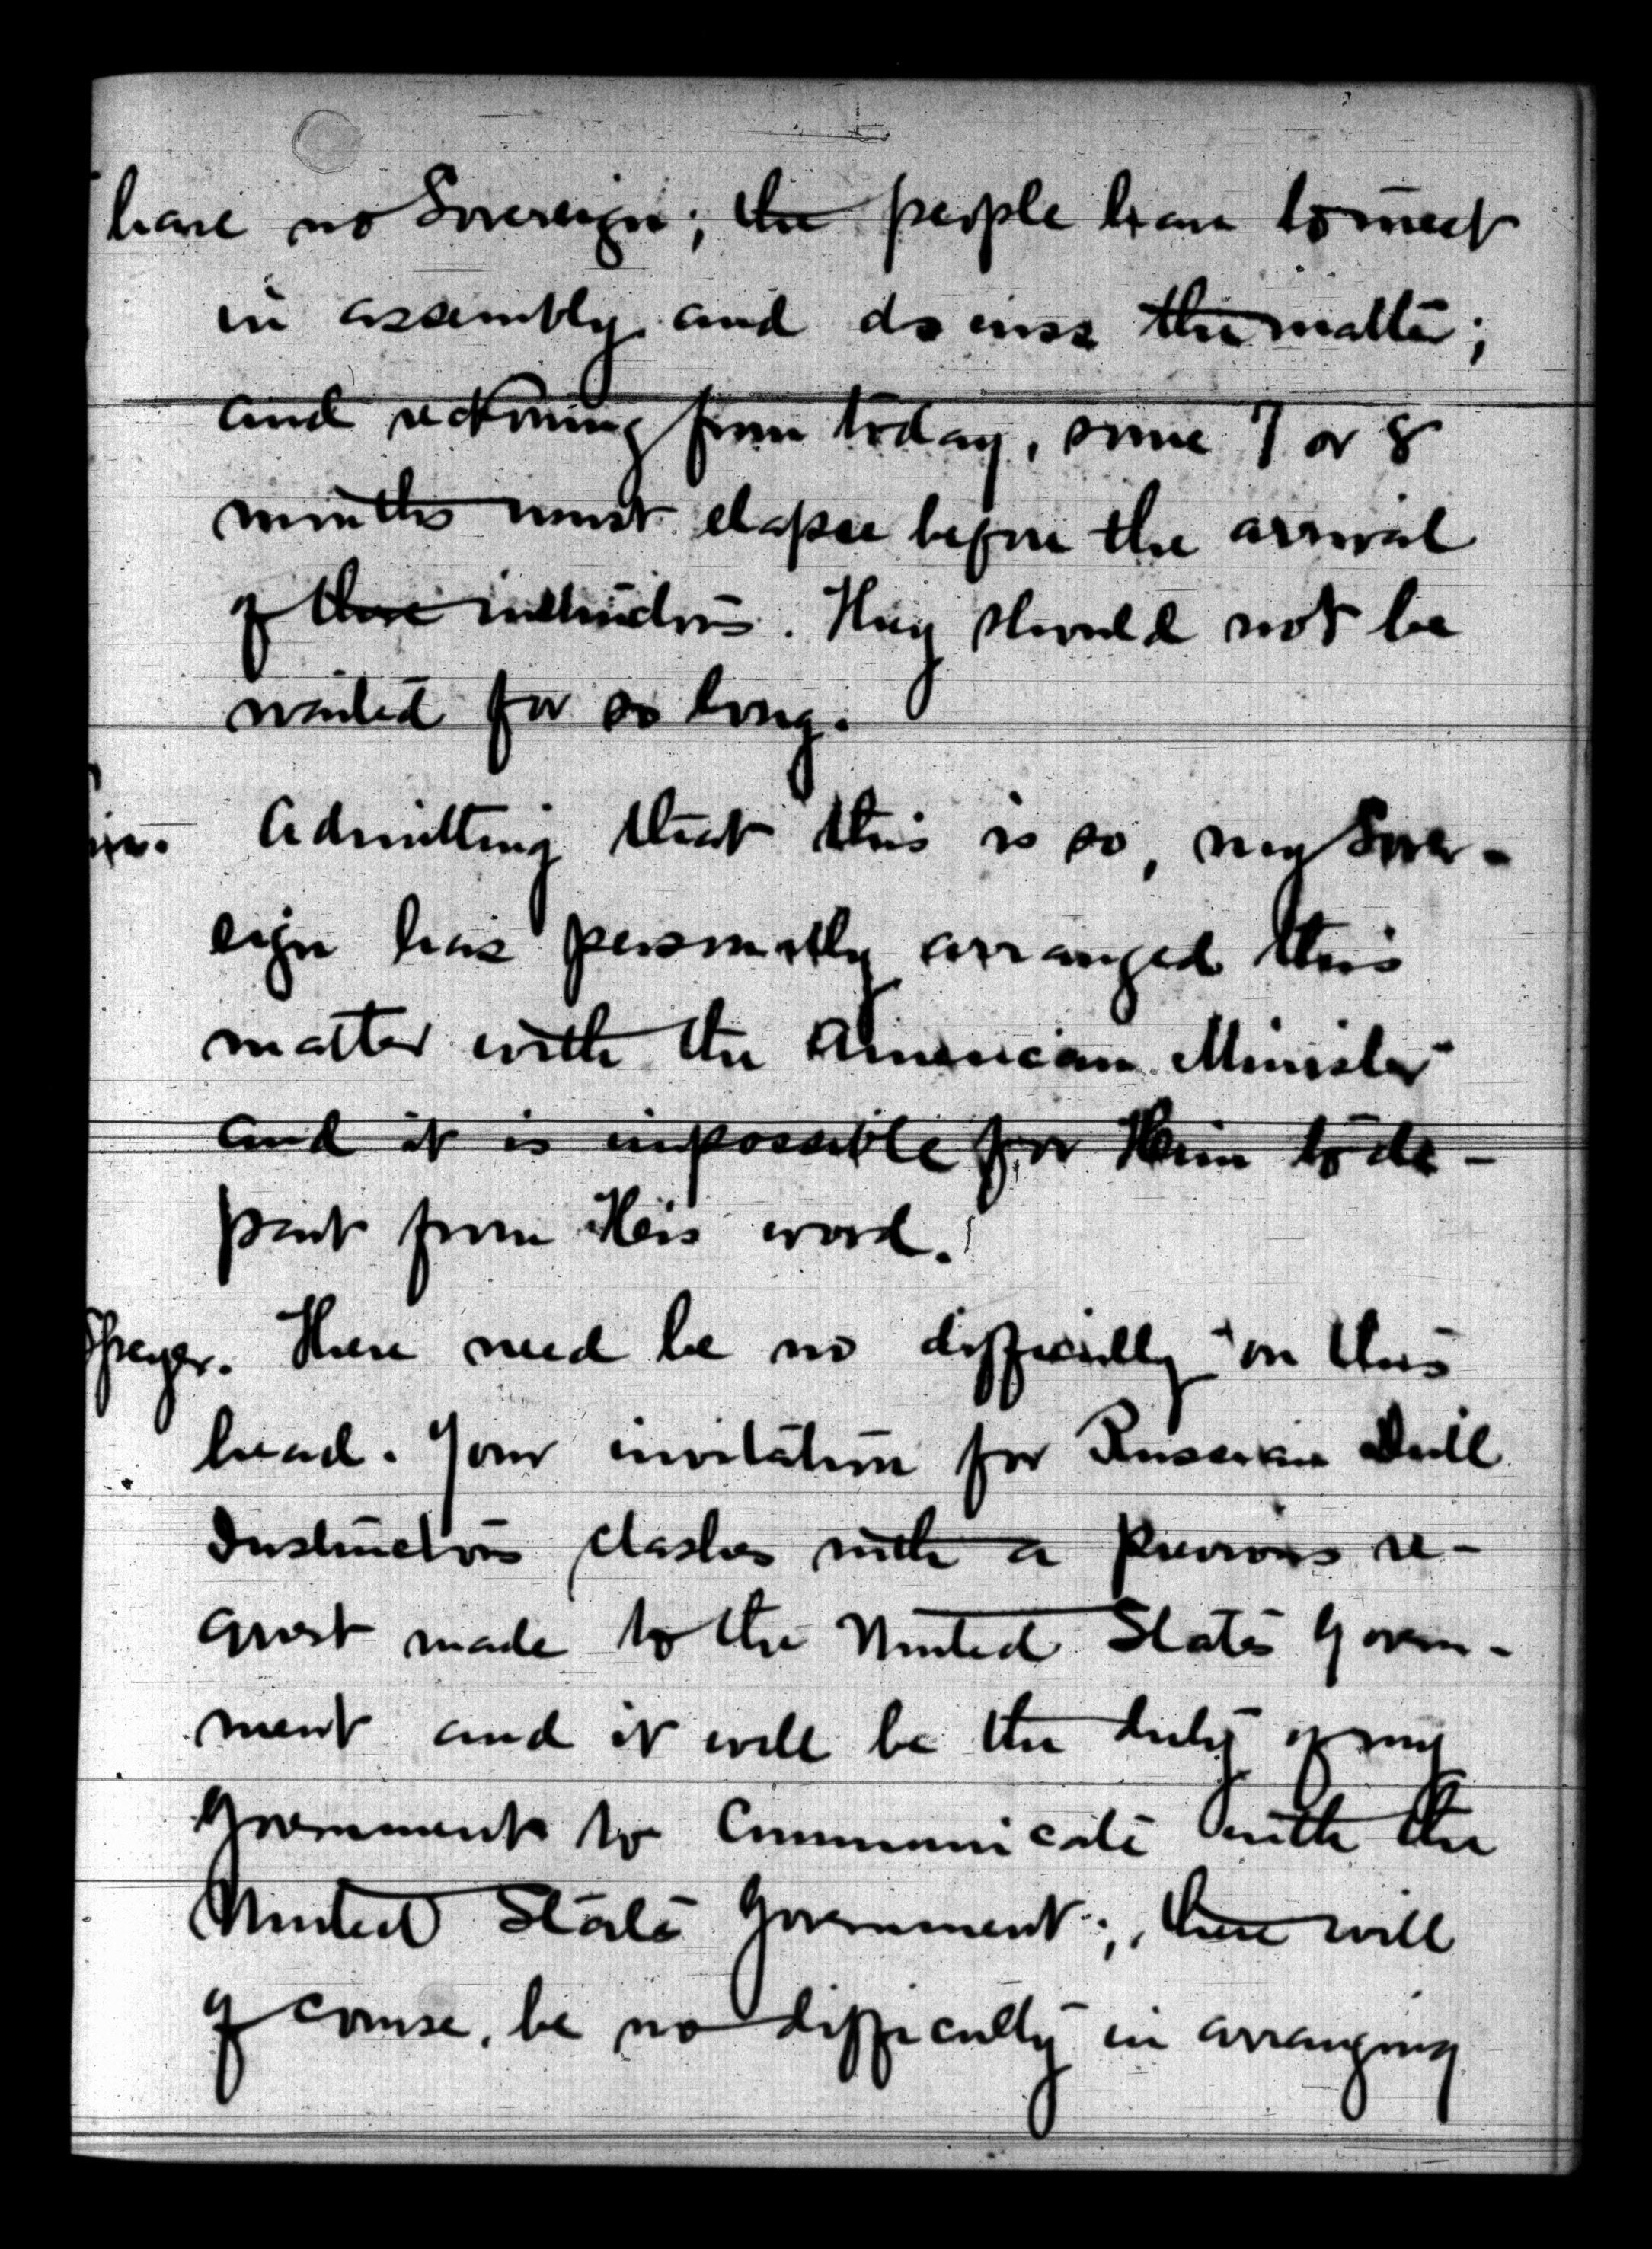 have no Sovereign; the people have to meet
in assembly and discuss the matter;
and reckoning from today, some 7 or 8
months must elapse before the arrival
of those instructors. They should not be
waited for so long.
Admitting that this is so, my Sover-
eign has personally arranged this
matter with the American Minister
and it is impossible for Him to de-
part from His word.
Speyer. There need be no difficulty on this
head. Your invitation for Russian Drill
Instructors clashes with a previous re-
quest made to the United States Govern-
ment and it will be the duty of my
Government to Communicate with the
United States Government; there will
of course, be no difficulty in arranging